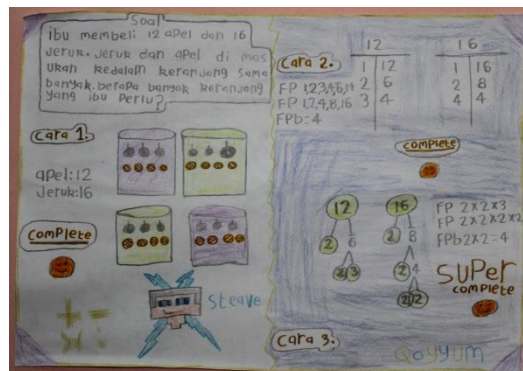 Soal
ibu membeli 12 apel dan 16
jeruk. Jeruk dan apel di mas
ukan kedalam keranjang sama
banyak. berapa banyak keranjang
yang ibu Perlu?
Cara 1.
apel:12
Jeruk:16
COMPLETE
Steave
+ =
× :
Cara 2.
FP 1,2,3,4,6,12
FP 1,2,4,8,16
FPb=4
12
1 12
2 6
3 4
16
1 16
2 8
4 4
COMPLETE
12
2 6
2 3
16
2 8
2 4
2 2
FP 2×2×3
FP 2×2×2×2
FPb2×2=4
SUPER
COMPLETE
Cara 3.
Qoyyum